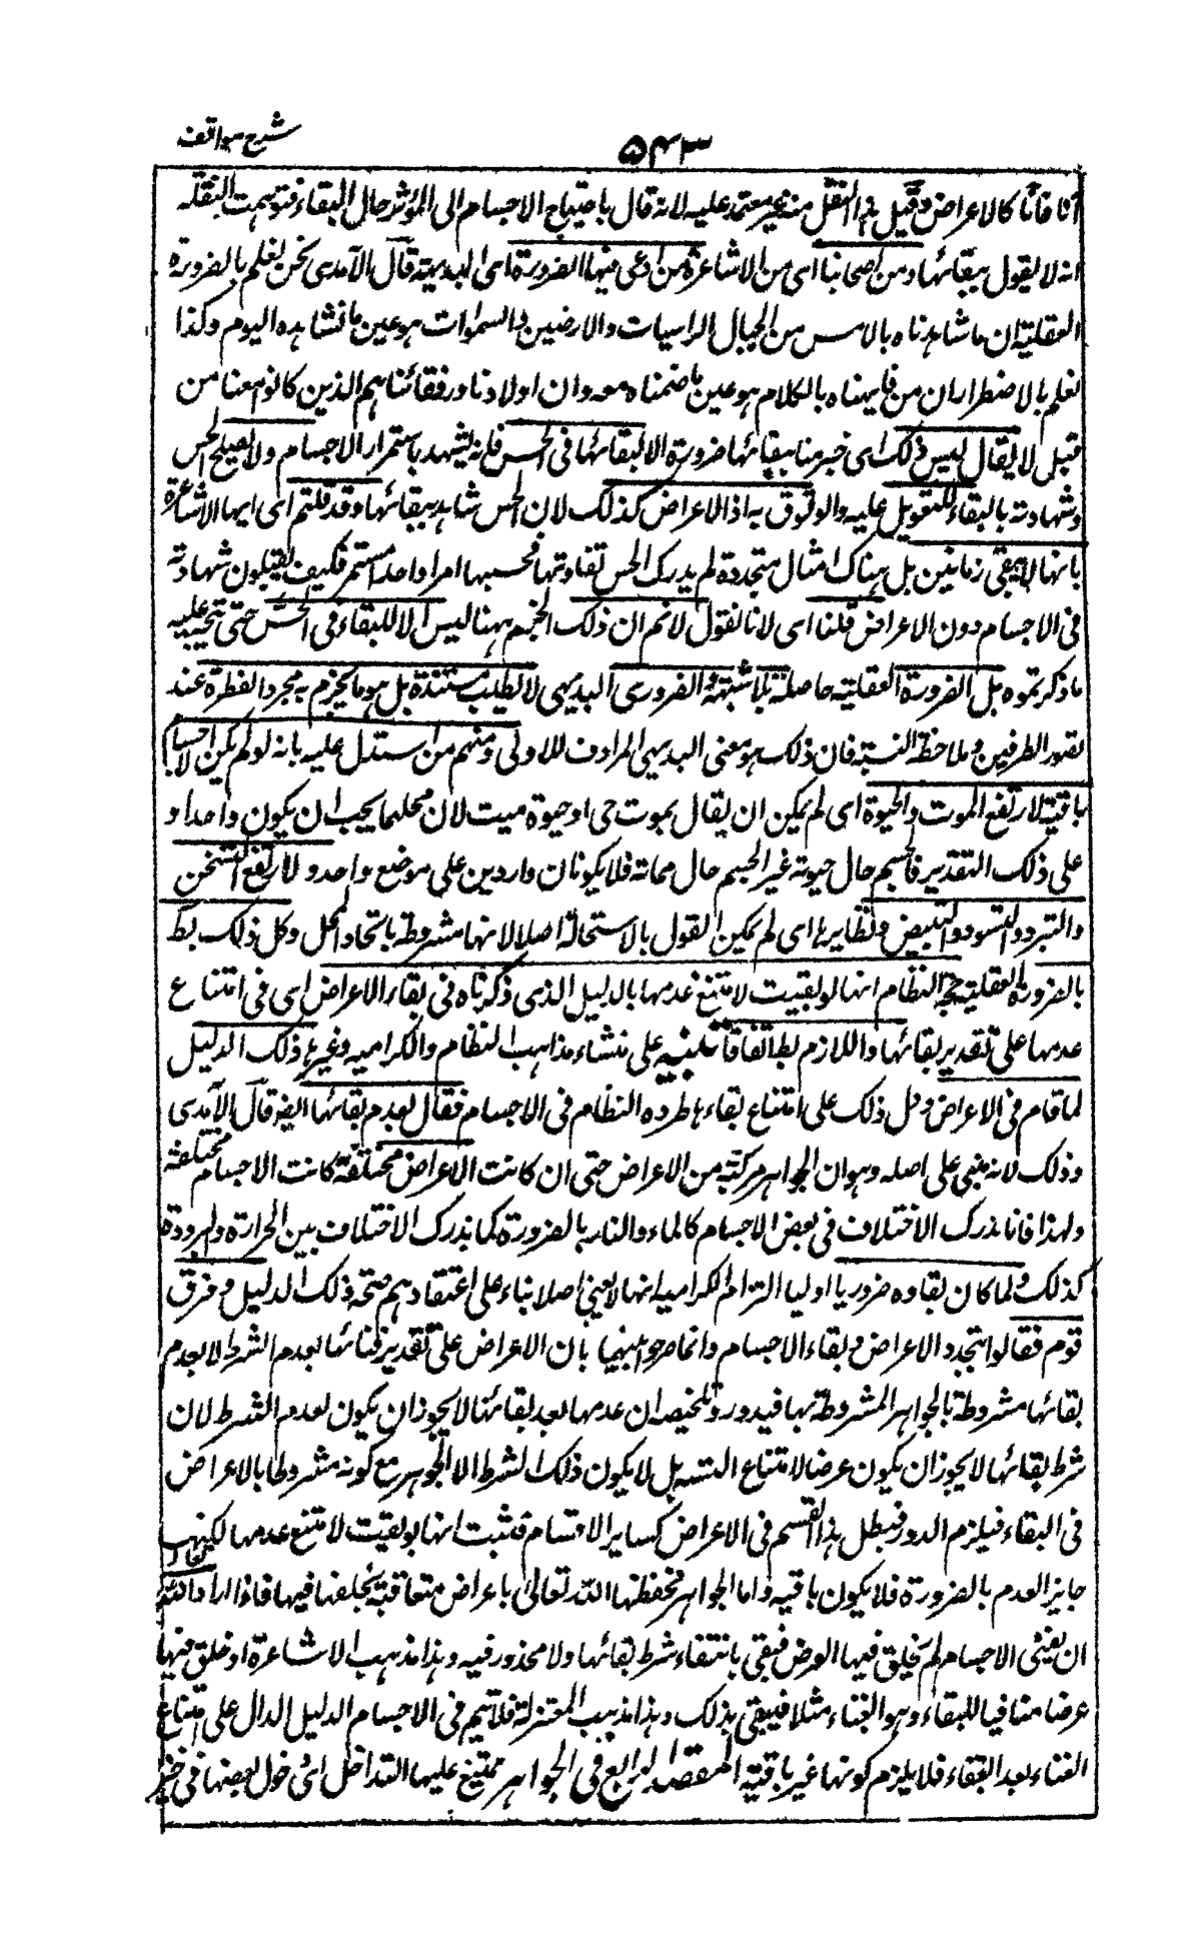 شرح مواقف
٥٤٣
آنا فآنا كالاعراض وقيل هذا النقل منه غير معتمد عليه لانه قال باحتياج الاجسام الى المؤثر حال البقاء فتوهمت النقلة
انه لا يقول ببقائها ومن اصحابنا اى من الاشاعرة من ادعى فيها الضرورة اى البديهية قال الآمدى نحن نعلم بالضرورة
العقلية ان ما شاهدناه بالامس من الجبال الراسيات والارضين والسموات هو عين ما نشاهده اليوم وكذا
نعلم بالاضطرار ان من فاتحناه بالكلام هو عين ما ختمناه معه وان اولادنا ورفقائنا هم الذين كانوا معنا من
قبل لا يقال ليس ذلك اى خبر منا ببقائها ضرورة الا لبقائها فى الحس فانه يشهد باستمرار الاجسام ولا يصلح الحس
وشهادته بالبقاء للتعويل عليه والوثوق به اذ الاعراض كذلك لان الحس شاهد ببقائها وقد قلتم اى ايها الاشاعرة
بانها لا يبقى زمانين بل هناك امثال متجددة لم يدرك الحس تفاوتها فحسبها امرا واحدا مستمر فكيف تقبلون شهادته
فى الاجسام دون الاعراض قلنا اى لانا نقول لا نم ان ذلك الجزم ههنا ليس الا للبقاء فى الحس حتى تتجه عليه
ما ذكرتموه بل الضرورة العقلية حاصلة بلا شبهة الضرورى البديهى لا يطلب مستنده بل هو ما يجزم به مجرد الفطرة عند
تصور الطرفين وملاحظة النسبة فان ذلك هو معنى البديهى المرادف للاولى ومنهم من استدل عليه بانه لو لم يكن الاجسام
باقية لارتفع الموت والحيوة اى لم يمكن ان يقال بموت حى او حيوة ميت لان محلهما يجب ان يكون واحدا و
على ذلك التقدير فالجسم حال حيوته غير الجسم حال مماته فلا يكونان واردين على موضع واحد ولارتفع التسخن
والتبرد والتسود والتبيض ونظايرها اى لم يمكن القول بالاستحالة اصلا لانها مشروطة باتحاد المحل وكل ذلك بط
بالضرورة العقلية حجة النظام انها لو بقيت لامتنع عدمها بالدليل الذى ذكرناه فى بقاء الاعراض اى فى امتناع
عدمها على تقدير بقائها واللازم بط اتفاقا تنبيه على منشاء مذاهب النظام والكرامية وغيرها ذلك الدليل
لما قام فى الاعراض ودل ذلك على امتناع بقاءها طرده النظام فى الاجسام فقال بعدم بقائها ايضا قال الآمدى
وذلك لانه بنى على اصله وهو ان الجواهر مركبة من الاعراض حتى ان كانت الاعراض مختلفة كانت الاجسام مختلفة
ولهذا فانا ندرك الاختلاف فى بعض الاجسام كالماء والنار بالضرورة كما ندرك الاختلاف بين الحرارة والبرودة
كذلك ولما كان بقاوه ضروريا اوليا التزام الكرامية انها لا يفنى اصلا بناء على اعتقادهم صحة ذلك الدليل وفرق
قوم فقالوا بتجدد الاعراض وبقاء الاجسام وانحا صرحوا بينها بان الاعراض على تقدير فنائها بعدم الشرط لا بعدم
بقائها مشروطة بالجواهر المشروطة بها فيدور وتلخيصه ان عدمها بعد بقائها لا يجوز ان يكون لعدم الشرط لان
شرط بقائها لا يجوز ان يكون عرضا لامتناع التسه بل لا يكون ذلك الشرط الا الجوهر مع كونه مشروطا بالاعراض
فى البقاء فيلزم الدور فبطل هذا القسم فى الاعراض كساير الاقسام فثبت انها لو بقيت لامتنع عدمها لكنها
جايز العدم بالضرورة فلا يكون باقية واما الجواهر فيحفظها الله تعالى باعراض متعاقبة يخلقها فيها فاذا اراد الله تعالى
ان يفنى الاجسام لم يخلق فيها العرض فبقى بانتفاء شرط بقائها ولا محذور فيه وهذا مذهب الاشاعرة او خلق فيها
عرضا منافيا للبقاء وهو الفناء مثلا فيبقى بذلك وهذا مذهب المعتزلة فلا تيم فى الاجسام الدليل الدال على امتناع
الفناء بعد البقاء فلا يلزم كونها غير باقية المقصد الرابع فى الجواهر يمتنع عليها التداخل اى دخول بعضها فى حيز